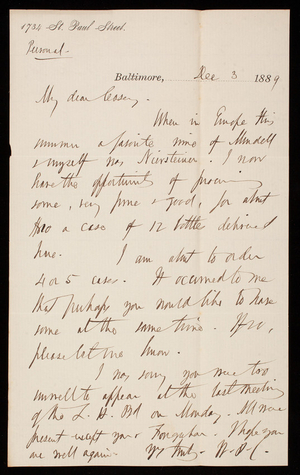 1734 St. Paul Street.
Personal.
Baltimore, Dec 3 1889
My dear Casey,
When in Europe this
summer a favorite wine of Mendell
& myself was Niersteiner. I now
have the opportunity of procuring
some, very pure & good, for about
$10 a case of 12 bottles delivered
here. I am about to order
4 or 5 cases. It occurred to me
that perhaps you would like to have
some at the same time. If so,
please let me know.
I was sorry you were too
unwell to appear at the last meeting
of the L. H. Bd on Monday. All were
present except you &
I hope you
are well again. Yr